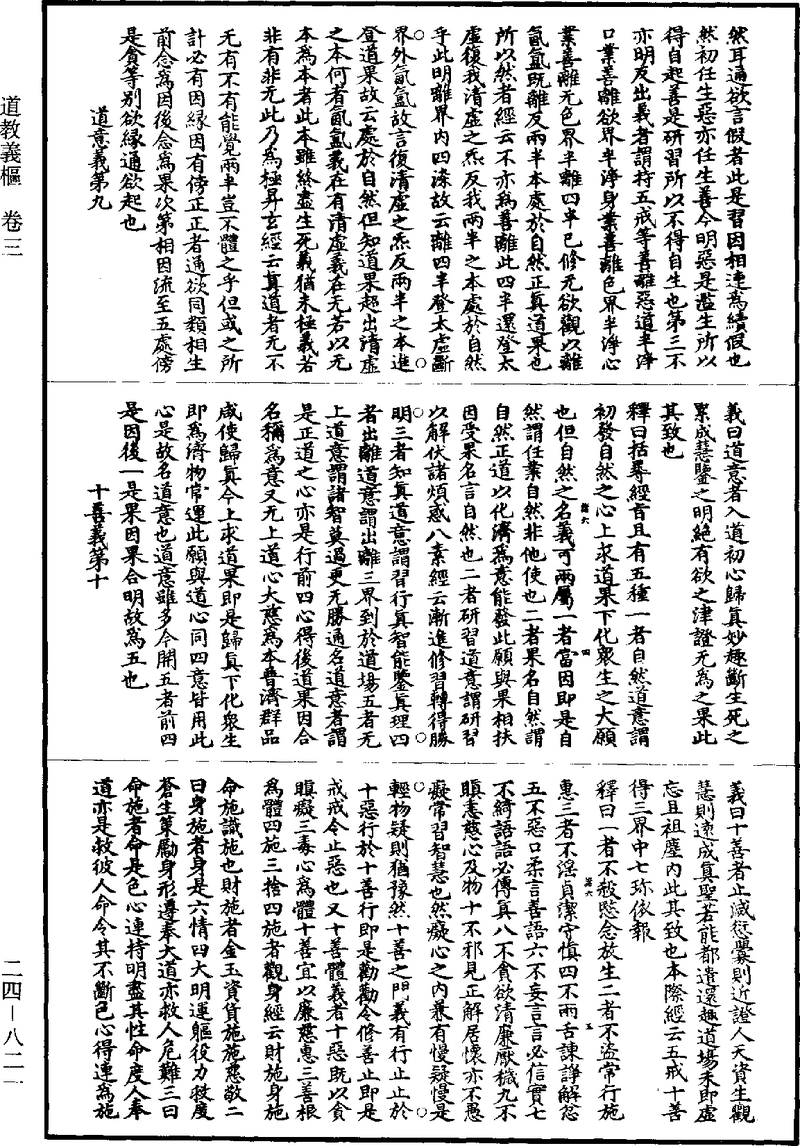 道教義樞　卷三
二四—八二一
然耳遍欲言假者此是習因相連為續假也
然初任生惡亦任生善今明惡是濫生所以
得自起善是研習所以不得自生也第三不
亦明反出義者謂持五戒等善離惡道半淨
口業善離欲界半淨身業善離色界半淨心
業善離无色界半離四半已修无欲觀以離
氤氳既離反兩半本處於自然正真道果也
所以然者經云不亦為善離此四半還登太
虛復我清虛之炁反我兩半之本處於自然
乎此明離界內四染故云離四半登太虛斷
界外氤氳故言復清虛之炁反兩半之本進
登道果故云處於自然但知道果超出清虛
之本何者氤氳義在有清虛義在无若以无
本為本者此本雖終盡生死義猶未極義若
非有非无此乃為極昇玄經云真道者无不
无有不有能覺兩半豈不體之乎但或之所
計必有因緣因有傍正正者通欲同類相生
前念為因後念為果次第相因流至五處傍
是貪等別欲緣通欲起也
道意義第九
義曰道意者入道初心歸真妙趣斷生死之
累成慧鑒之明絕有欲之津證无為之果此
其致也
釋曰括尋經旨且有五種一者自然道意謂
初發自然之心上求道果下化眾生之大願
也但自然之名義可兩屬一者當因即是自
然謂任業自然非他使也二者果名自然謂
自然正道以化濟為意能發此願與果相扶
因受果名言自然也二者研習道意謂研習
以解伏諸煩惑八素經云漸進修習轉得勝
明三者知真道意謂習行真智能鑒真理四
者出離道意謂出離三界到於道場五者无
上道意謂諸智莫過更无勝通名道意者謂
是正道之心亦是行前四心得後道果因合
名稱為意又无上道心大慈為本普濟群品
咸使歸真今上求道果即是歸真下化眾生
即為濟物常運此願與道心同四意皆用此
心是故名道意也道意雖多今開五者前四
是因後一是果因果合明故為五也
十善義第十
義曰十善者止滅愆釁則近證人天資生觀
慧則遠成真聖若能都遣還趣道場未即虛
忘且祖塵內此其致也本際經云五戒十善
得三界中七珍依報
釋曰一者不殺愍念放生二者不盜常行施
惠三者不淫貞潔守慎四不兩舌諫諍解忿
五不惡口柔言善語六不妄言言必信實七
不綺語語必傳真八不貪欲清廉厭穢九不
瞋恚慈心及物十不邪見正解居懷亦不愚
癡常習智慧也然癡心之內兼有慢疑慢是
輕物疑則猶豫然十善之門義有行止止於
十惡行於十善行即是勸勸令修善止即是
戒戒令止惡也又十善體義者十惡既以貪
瞋癡三毒心為體十善宜以廉慈惠三善根
為體四施三捨四施者觀身經云財施身施
命施識施也財施者金玉資貨施施慈敬二
曰身施者身是六情四大明運軀役力救度
蒼生策勵身形遵奉大道亦救人危難三曰
命施者命是色心連持明盡其性命度人奉
道亦是救彼人命令其不斷色心得連為施